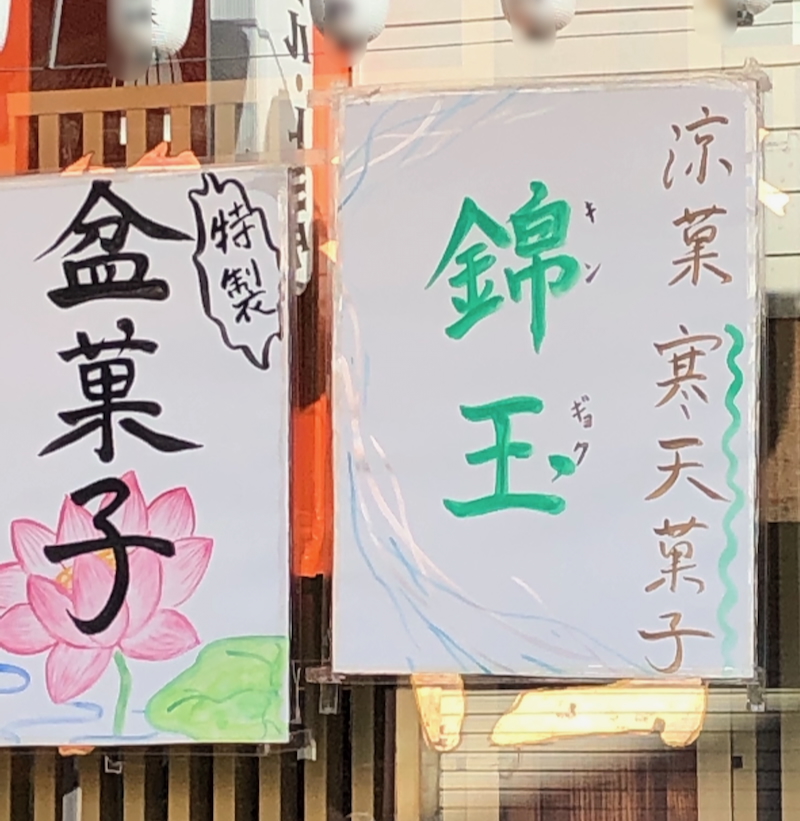 涼菓 寒天菓子
錦玉
キンギョク
特製
盆菓子